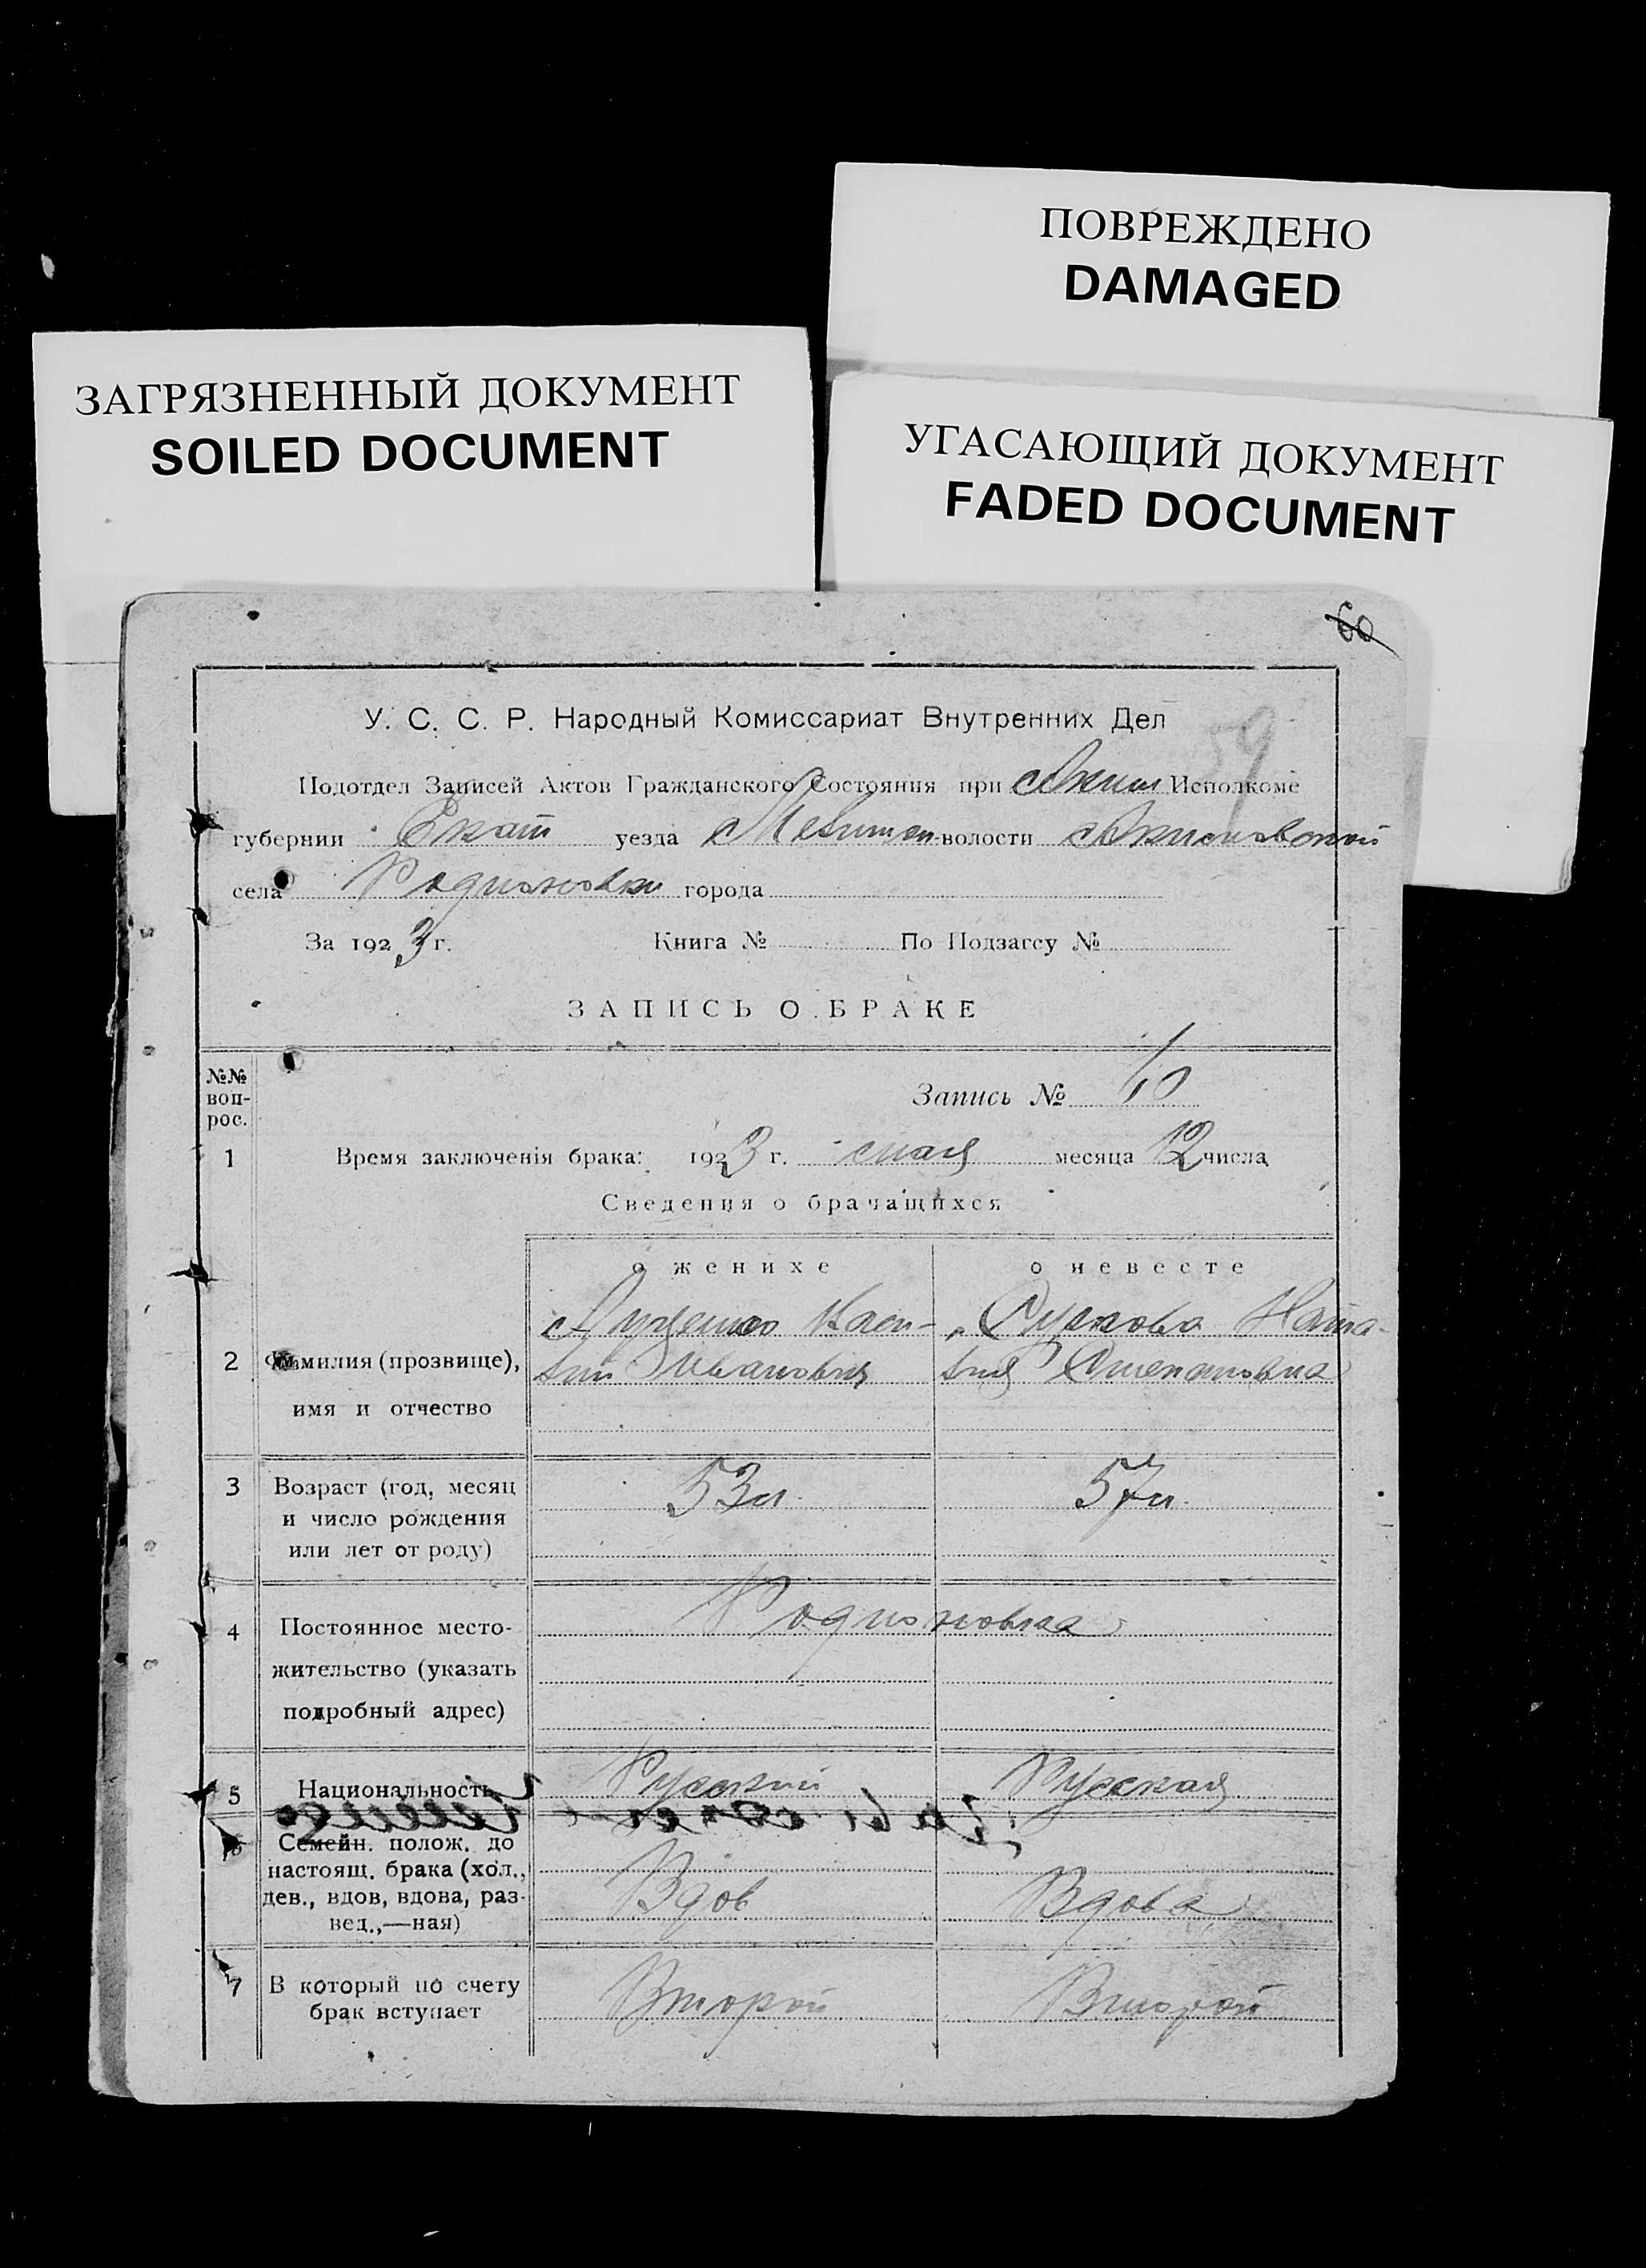 ПОВРЕЖДЕНО
DAMAGED
ЗАГРЯЗНЕННЫЙ ДОКУМЕНТ
SOILED DOCUMENT
УГАСАЮЩИЙ ДОКУМЕНТ
FADED DOCUMENT
60
59
У. С. С. Р. Народный Комиссариат Внутренних Дел
Подотдел Записей Актов Гражданского Состояния при Аким Исполкоме
губернии Екат уезда Мелитоп волости Акимовской
села Родионовки города
За 1923 г. Книга № По Подзагсу №
ЗАПИСЬ О БРАКЕ
№№ воп-рос.
Запись № 10
1 Время заключенія брака: 1923 г. мая месяца 12 числа
Сведения о брачащихся
о женихе о невесте
2 Фамилия (прозвище), имя и отчество
Васи-
лий Иванович
Суркова Ната-
лия Степановна
3 Возраст (год, месяц
и число рождения
или лет от роду)
53 л. 57 л.
4 Постоянное место-
жительство (указать
подробный адрес)
Родионовка
5 Национальность Русский Русская
6 Семейн. полож. до
настоящ. брака (хол.,
дев., вдов, вдова, раз-
вед.,—ная)
Вдов Вдова
7 В который по счету
брак вступает
Второй Второй